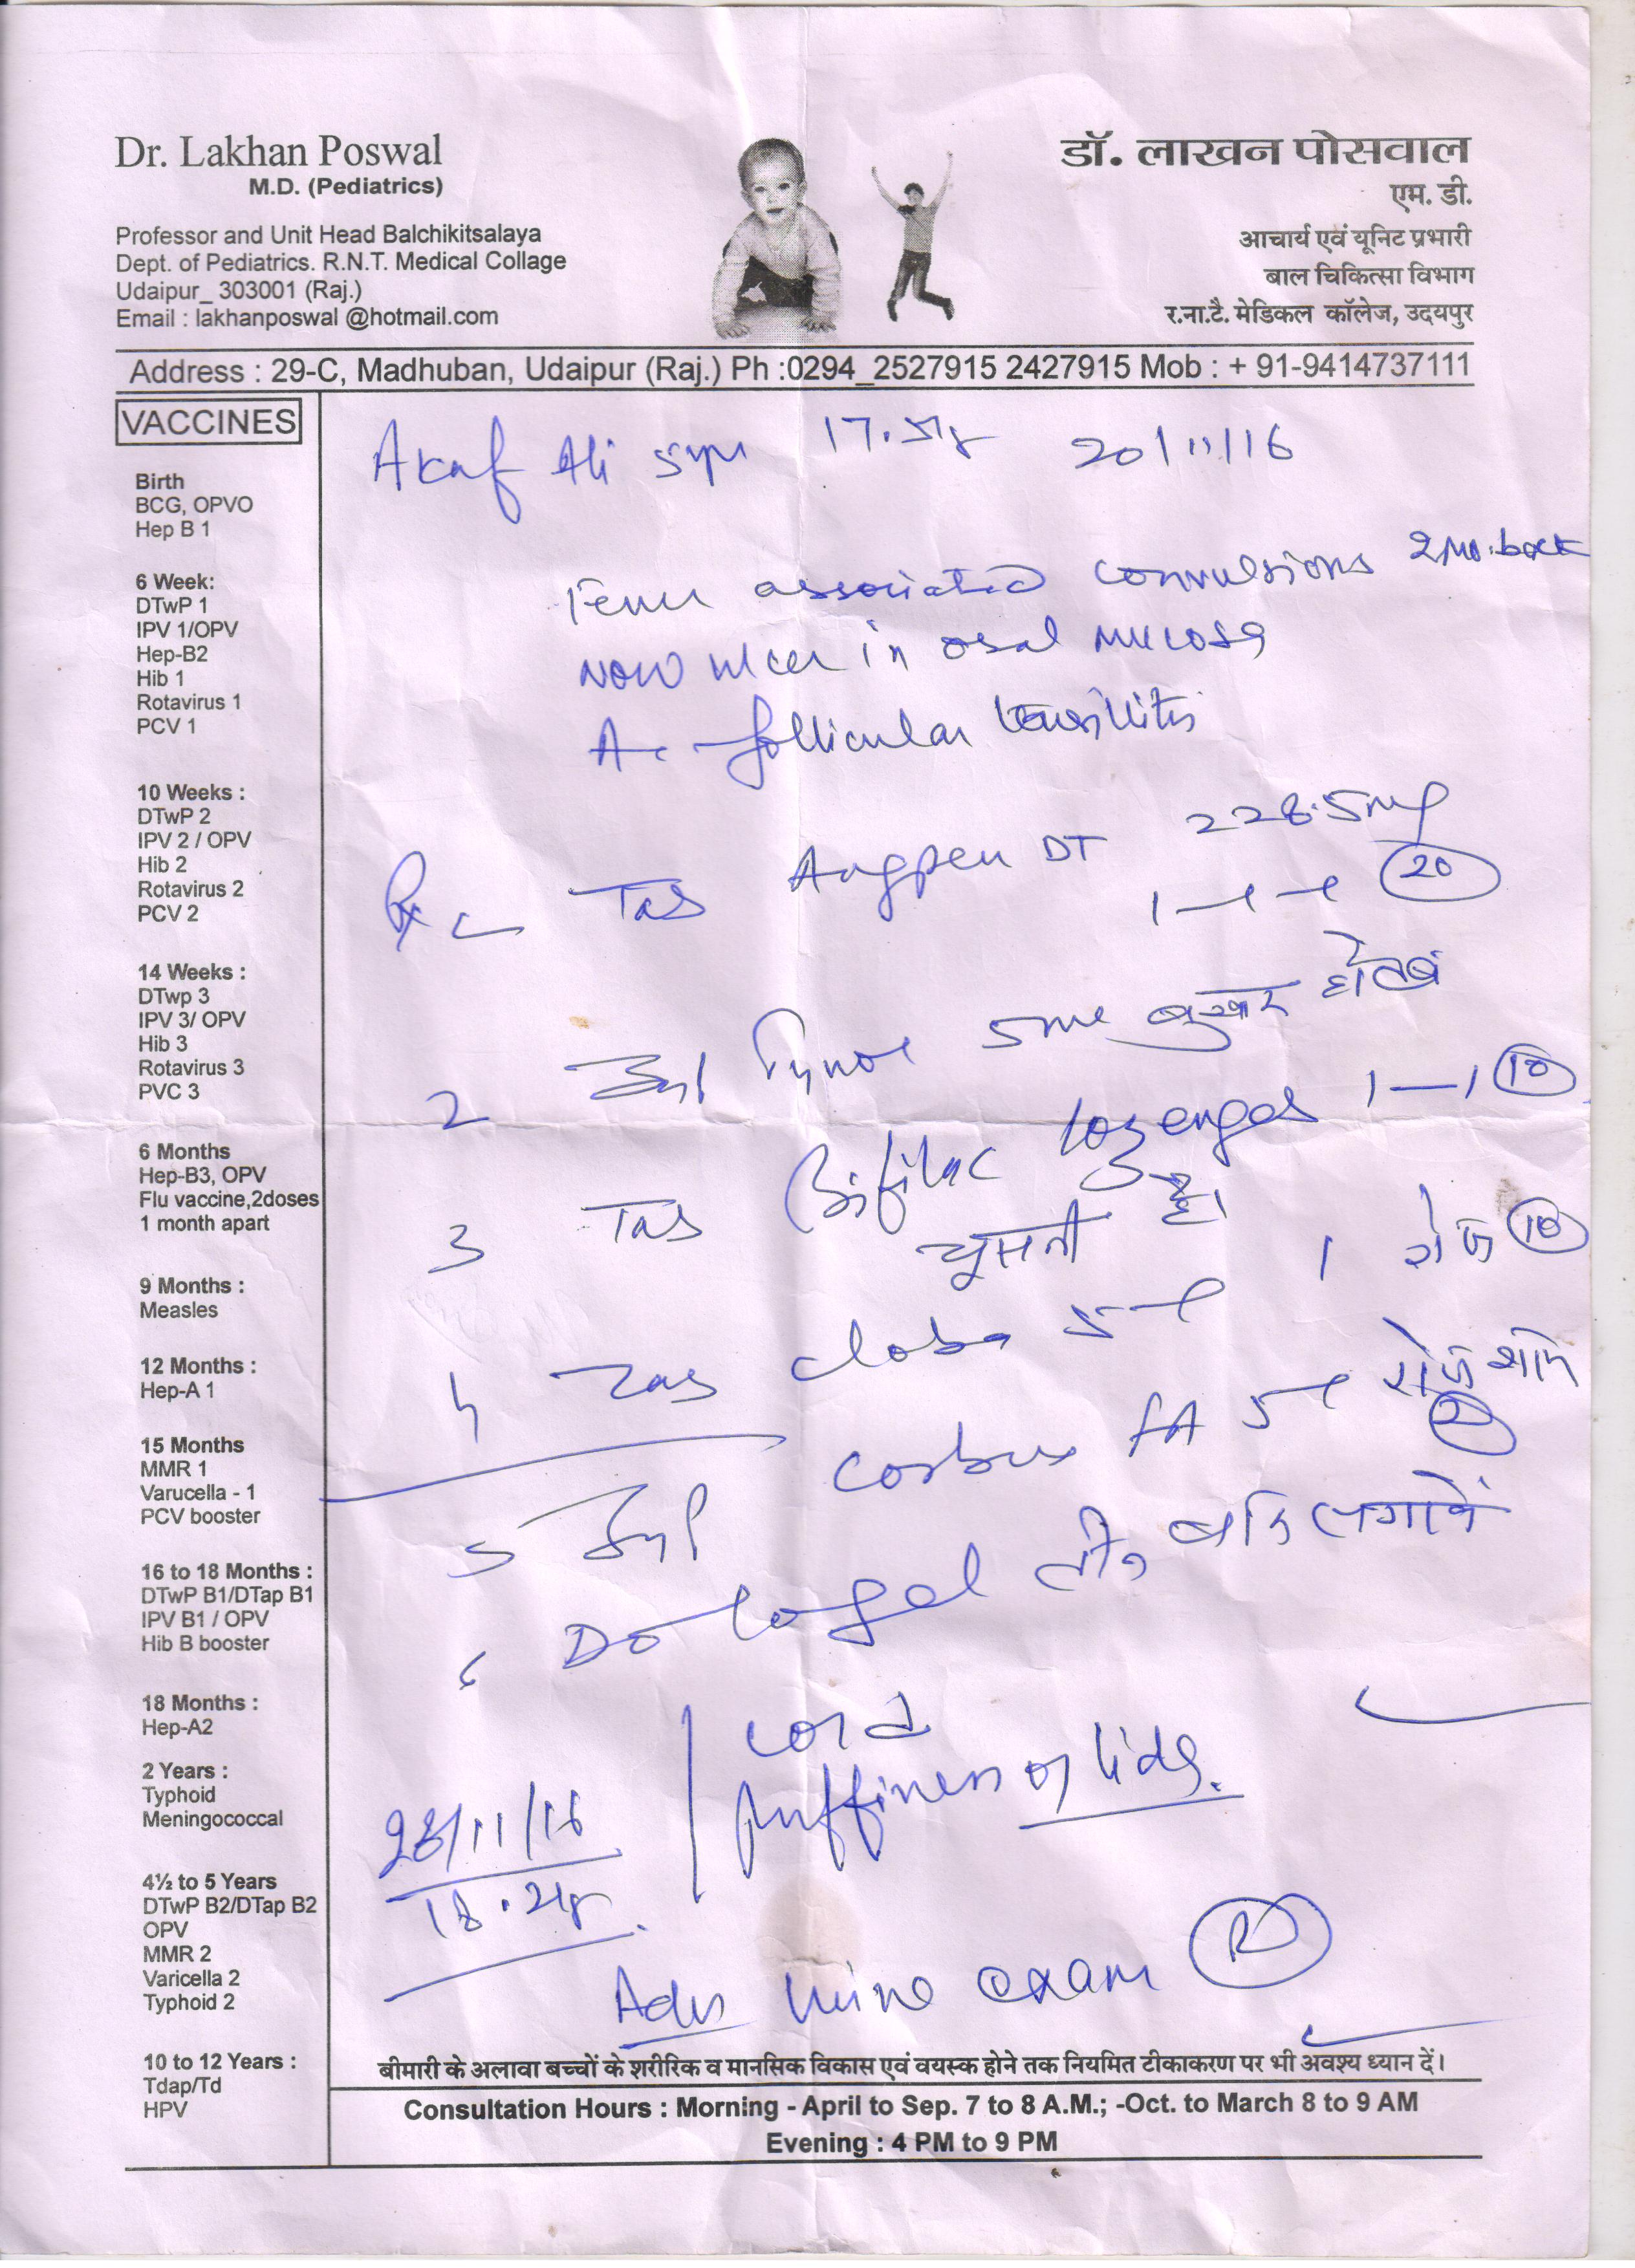 Dr. Lakhan Poswal
M.D. (Pediatrics)
Professor and Unit Head Balchikitsalaya
Dept. of Pediatrics. R.N.T. Medical Collage
Udaipur_ 303001 (Raj.)
Email : lakhanposwal @hotmail.com
डॉ. लाखन पोसवाल
एम. डी.
आचार्य एवं यूनिट प्रभारी
बाल चिकित्सा विभाग
र.ना.टै. मेडिकल कॉलेज, उदयपुर
Address : 29-C, Madhuban, Udaipur (Raj.) Ph :0294_2527915 2427915 Mob : + 91-9414737111
VACCINES
Birth
BCG, OPVO
Hep B 1
6 Week:
DTwP 1
IPV 1/OPV
Hep-B2
Hib 1
Rotavirus 1
PCV 1
10 Weeks :
DTwP 2
IPV 2 / OPV
Hib 2
Rotavirus 2
PCV 2
14 Weeks :
DTwp 3
IPV 3/ OPV
Hib 3
Rotavirus 3
PVC 3
6 Months
Hep-B3, OPV
Flu vaccine,2doses
1 month apart
9 Months :
Measles
12 Months :
Hep-A 1
15 Months
MMR 1
Varucella - 1
PCV booster
16 to 18 Months :
DTwP B1/DTap B1
IPV B1 / OPV
Hib B booster
18 Months :
Hep-A2
2 Years :
Typhoid
Meningococcal
4½ to 5 Years
DTwP B2/DTap B2
OPV
MMR 2
Varicella 2
Typhoid 2
10 to 12 Years :
Tdap/Td
HPV
Ali 5yr 20/11/16
Fever associated convulsions 2 mo. back
Now ulcer in oral mucosa
Ac follicular tonsillitis
Rx Tab Augpen DT 228.5mg
1-1-1 20
2 Syl 5ml बुखार हो तब
3 Tab Bifilac lozenges 1—1 10
चूसनी है।
4 Tab cloba 5 1 रोज 10
5 Syl FA 5 रोज शाम
6 Dologel
Cold
Puffiness of lids.
23/11/16
Adv urine exam R
बीमारी के अलावा बच्चों के शरीरिक व मानसिक विकास एवं वयस्क होने तक नियमित टीकाकरण पर भी अवश्य ध्यान दें।
Consultation Hours : Morning - April to Sep. 7 to 8 A.M.; -Oct. to March 8 to 9 AM
Evening : 4 PM to 9 PM